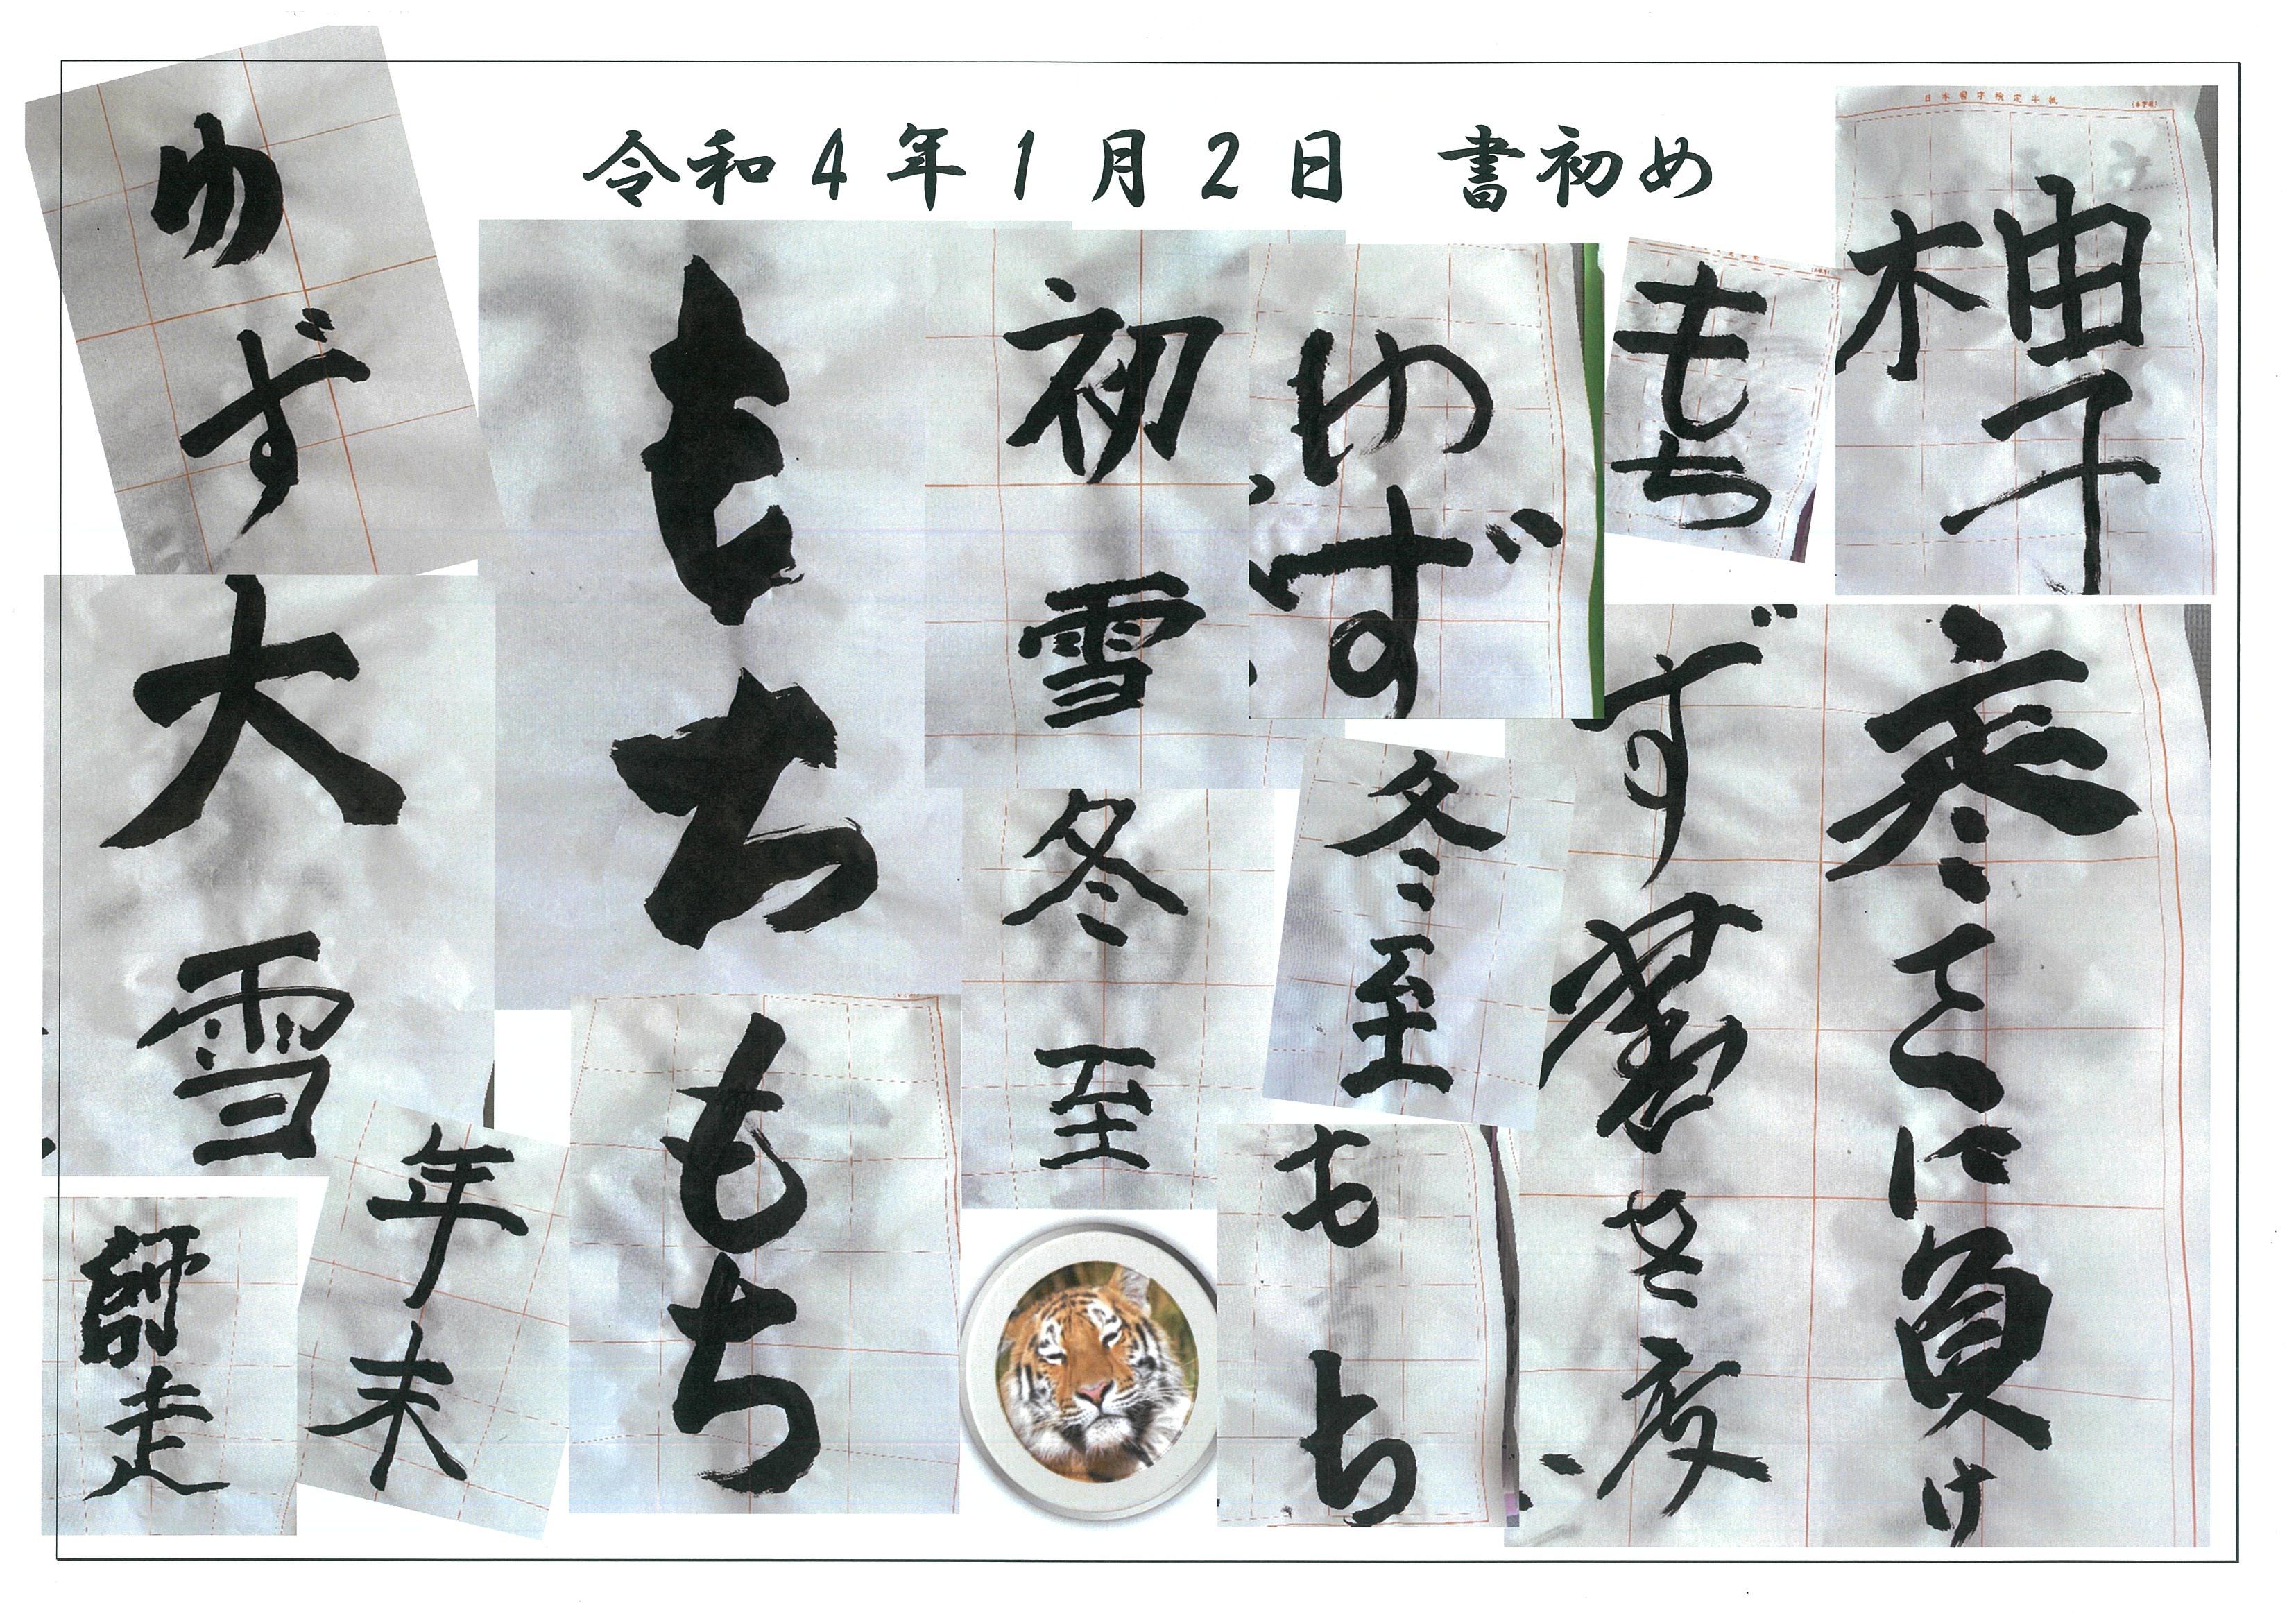 令和4年1月2日 書初め
日本習字検定半紙
柚子
もち
ゆず
初雪
もち
ゆず
寒さに負け
ず
冬至
冬至
大雪
もち
もち
年末
師走